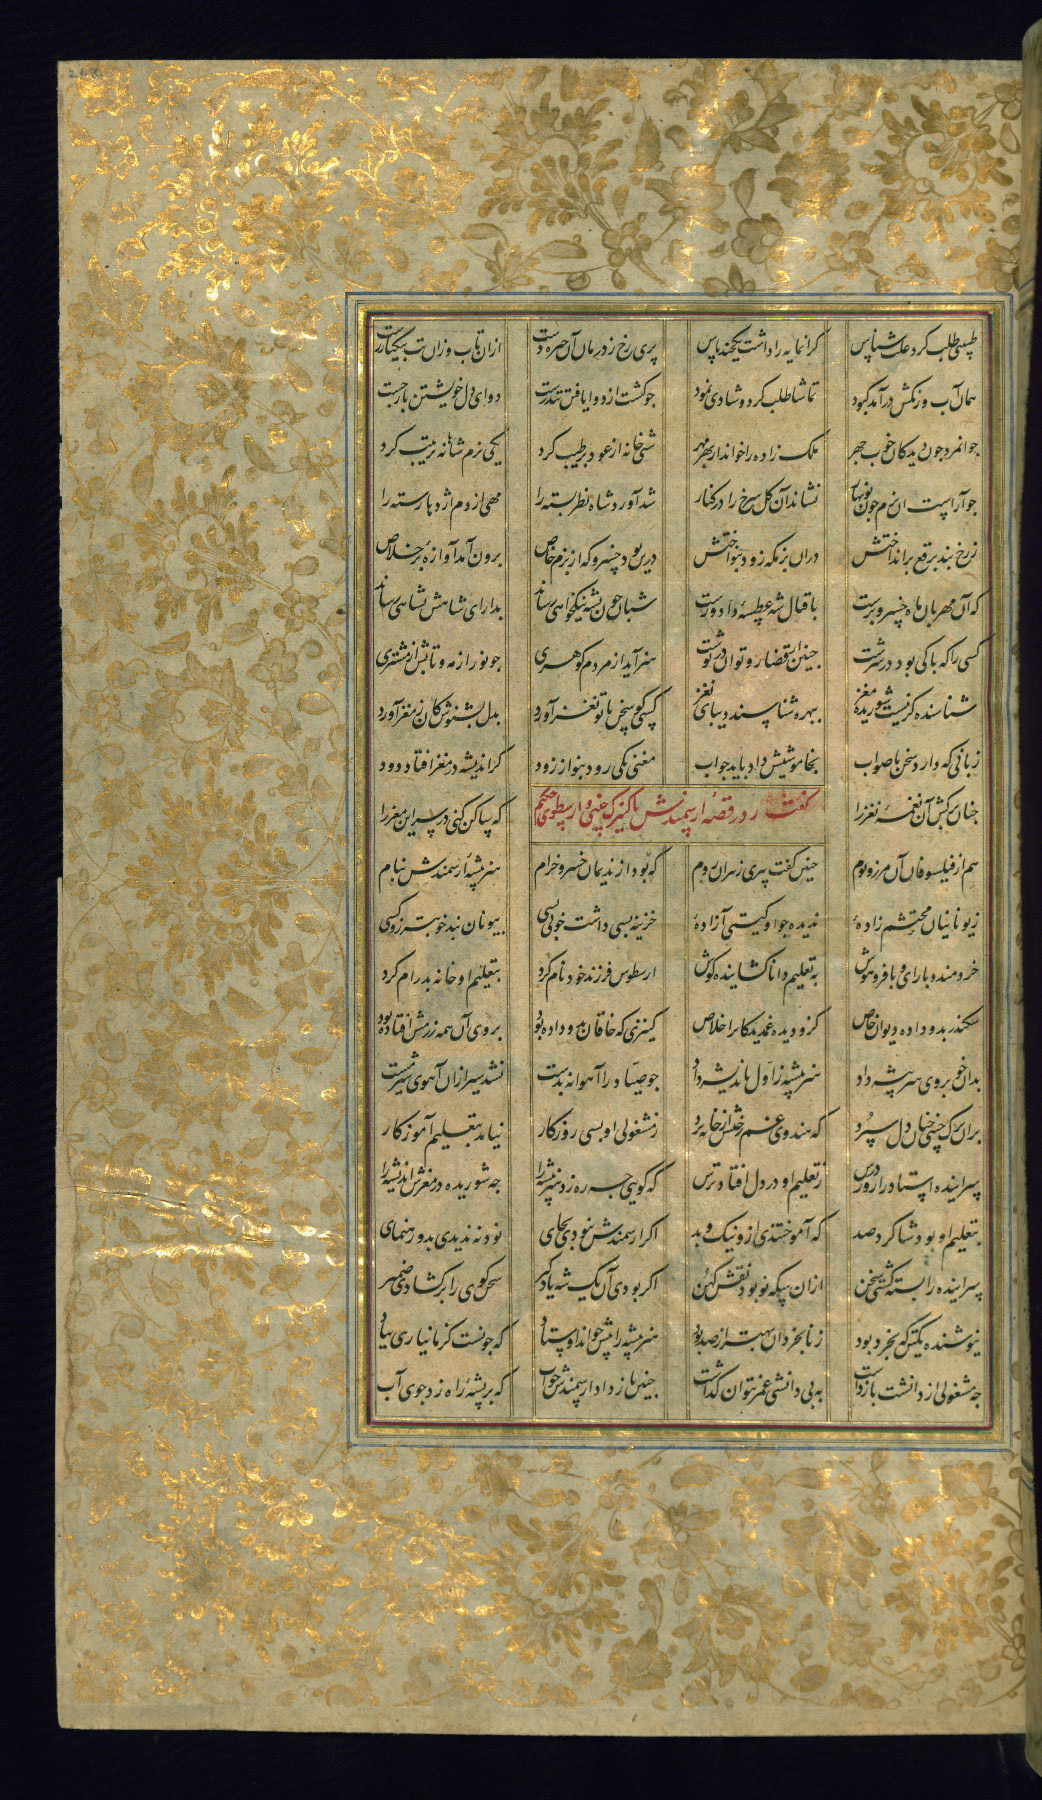 طبیبی طلب کرد علت شناس گرانمایه را داشت یکچند پاس پری رخ ز درمان آن چیره دست ازان تاب وزان تب بیکبار رست
همان آب و رنگش درآمد که بود تماشا طلب کرد و شادی نمود چو گشت از دوا یافتن تندرست دوای دل خویشتن بازجست
جوانمرد چون دید کان خوب چهر ملک زاده را خواند از بهر مهر شبی خانه از عود پر طیب کرد یکی بزم شاهانه ترتیب کرد
چو آراست آن بزم چون نوبهار نشاند آن گل سرخ را در کنار شد آورد شاه نظر بسته را مهی از دم اژدها رسته را
ز رخ بند برقع برانداختش دران بزمگه زود بنواختش درین بود خسرو که از بزم خاص برون آمد آوازهٔ بر خلاص
که آن مهربان ماه خسرو پرست باقبال شه عطسهٔ داد و رست شبان چون بشه نیکخواهی رساند بدارای شاهش بشاهی رساند
کسی را که پاکی بود در سرشت چنین از قضا رو توان درنوشت هنر آید از مردم گوهری چو نور از مه و تابش از مشتری
شناسنده گر نیست شوریده مغز بهره شناسند دیبای نغز کسی کو سخن با تو نغز آورد بدل بشنوش کان ز مغز آورد
زبانی که دارد سخن ناصواب بخاموشیش داد باید جواب مغنی یکی رود بنواز زود کز اندیشه در مغز افتاد دود
چنان برکش آن نغمهٔ نغز را که ساکن کنی در سر این مغز را
گفتار در قصهٔ ارسمندش با کنیزک چینی و ارسطوی حکیم
هم از فیلسوفان آن مرز و بوم چنین گفت پیری ز پیران روم که بود از ندیمان خسرو خرام هنرپیشهٔ ارسمندش بنام
ز یونانیان محتشم زادهٔ ندیده چو او گیتی آزادهٔ خزینه بسی داشت خوبی بسی بیونان نبد خوبتر زو کسی
خردمند و با رای و با فر و هوش به تعلیم دانا گشاینده گوش ارسطوش فرزند خود نام کرد بتعلیم او خانه بدرام کرد
سکندر بدو داده دیوان خاص کزو دیده غمدیدگانرا خلاص کنیزی که خاقان بدو داده بود بروی آن همه رزمش افتاده بود
بدان خوبروی هنرپیشه داد هنرپیشه ز اول باندیشه داد چو صیاد را آهو آمد بدست نشد سیر ازان آهوی شیر مست
بران ترک چینی چنان دل سپرد که هندوی غم رختش از خانه برد ز مشغولی او بسی روزگار نیامد بتعلیم آموزگار
سراینده استاد را روز درس ز تعلیم او در دل افتاد ترس که گویی چه ره زد هنرپیشه را چه شوریده در مغزش اندیشه را
بتعلیم او بود شاگرد صد که آموختندی ازو نیک و بد اگر ارسمندش نبودی بجای نود نه ندیدی بدو رهنمای
سراینده را بسته گشتی سخن ازان سکه نو بود نقش کهن اگر بودی آن یک شه یادگیر سخنگوی را برگشادی ضمیر
نیوشنده یکتن که بخرد بود ز نابخردان بهتر از صد بود هنرپیشه را پیش خواند اوستاد که چونست کز ما نیاری بیاد
چه مشغولی از دانشت باز داشت به بی دانشی عمر نتوان گذاشت چنین باز داد ارسمندش جواب که بر تشنه راه زد جوی آب